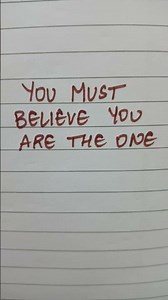 YOU MUST
BELIEVE YOU
ARE THE ONE